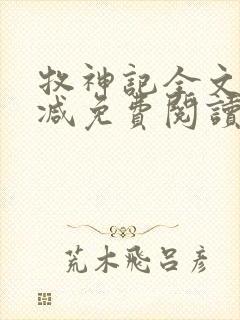 牧神記全文
減免費閱讀
荒木飛呂彥